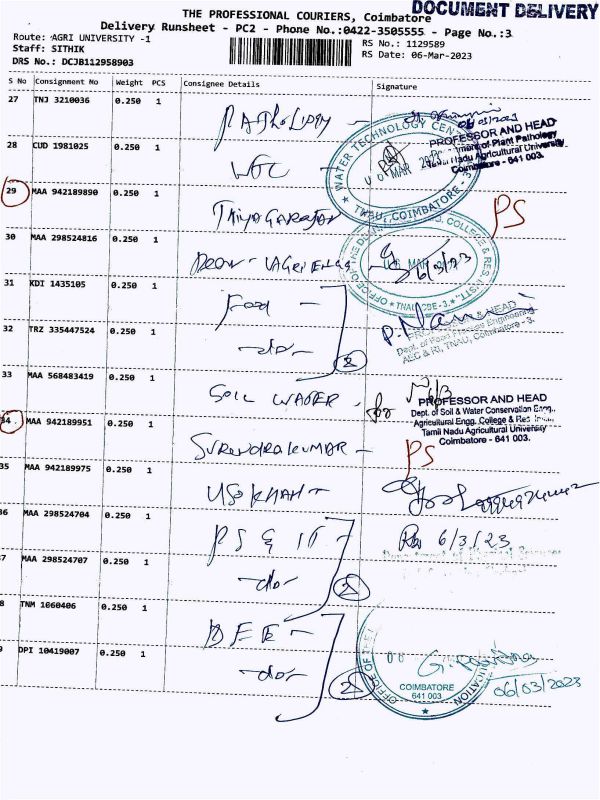 DOCUMENT DELIVERY
THE PROFESSIONAL COURIERS, Coimbatore
Delivery Runsheet - PC2 - Phone No.:0422-3505555 - Page No.:3
Route: AGRI UNIVERSITY -1
RS No.: 1129589
Staff: SITHIK
RS Date: 06-Mar-2023
DRS No.: DCJB112958903
S No Consignment No Weight PCS Consignee Details Signature
27 TNJ 3210036 0.250 1 Pathology
PROFESSOR AND HEAD
Department of Plant Pathology
Tamil Nadu Agricultural University
Coimbatore - 641 003.
28 CUD 1981025 0.250 1 WTC
WATER TECHNOLOGY CENTRE
TNAU, COIMBATORE - 3.
29 MAA 942189890 0.250 1 Thiyagarajan PS
30 MAA 298524816 0.250 1 Dean - Agri Engg 6/3/23
31 KDI 1435105 0.250 1 Food
P.
PROFESSOR & HEAD
Dept. of Food Process Engineering
AEC & RI, TNAU, Coimbatore - 3.
32 TRZ 335447524 0.250 1 -do- 2
33 MAA 568483419 0.250 1 SOIL WATER for
PROFESSOR AND HEAD
Dept. of Soil & Water Conservation Engg.,
Agricultural Engg. College & Res. Inst.,
Tamil Nadu Agricultural University
Coimbatore - 641 003.
34 MAA 942189951 0.250 1 SURENDRAKUMAR - PS
35 MAA 942189975 0.250 1
36 MAA 298524704 0.250 1 PS & IT - 6/3/23
37 MAA 298524707 0.250 1 -do- 2
38 TNM 1060406 0.250 1 DEE -
39 DPI 10419007 0.250 1 -do- 2
COIMBATORE
641 003
06/03/2023